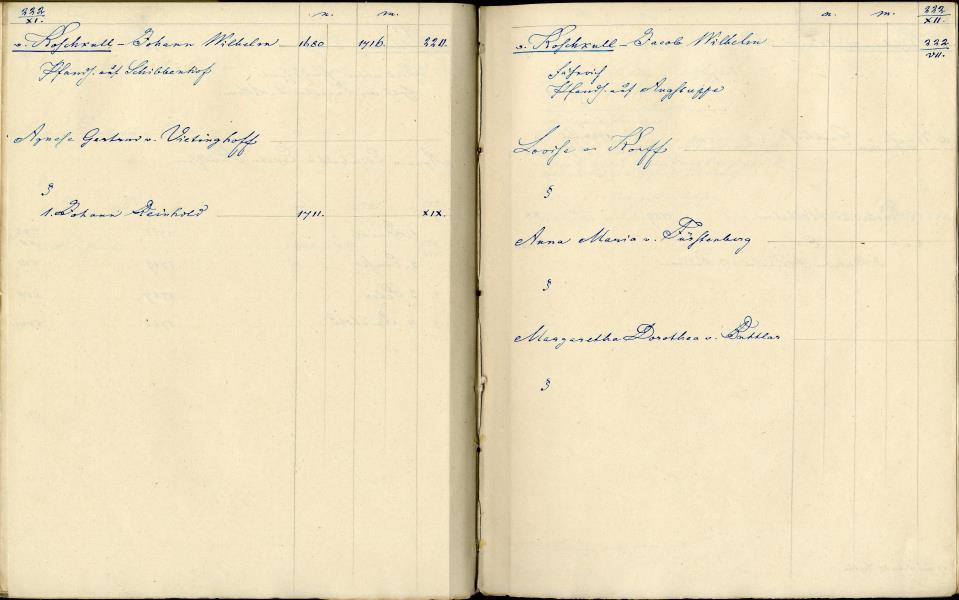 222
XI.
n. m.
v. Koschkull – Johann Wilhelm 1680 1716. 22 II.
Pfandh. auf Schibbenhof
Agnesa Gertrud v. Vietinghoff
§
1. Johann Reinhold 1711. XIX.
222
XII.
n. m.
v. Koschkull – Jacob Wilhelm 222
VII.
Fähnrich
Pfandh. auf
Louise v. Korff
§
Anna Maria v. Fürstenberg
§
Margaretha Dorothea v. Buttlar
§